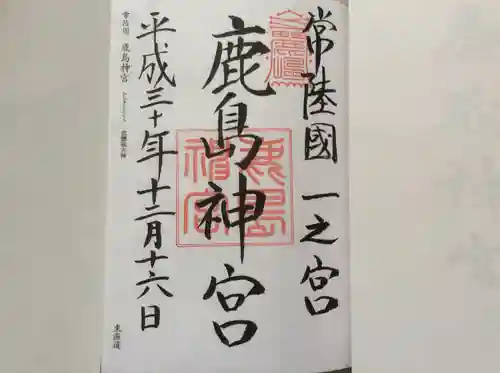 常陸國 一之宮
鹿島神宮
平成三十年十二月十六日
常陸国 鹿島神宮
東海道
鹿島神宮